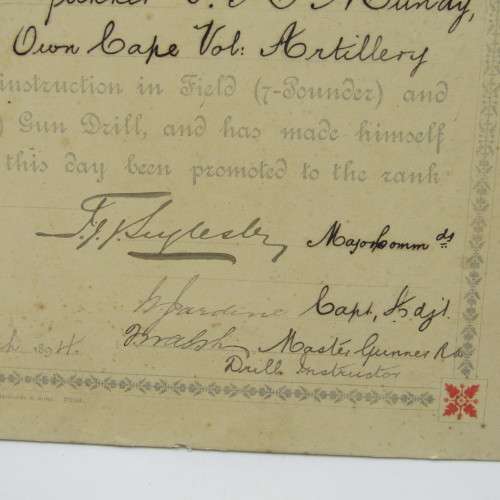 Mundy,
Own Cape Vol: Artillery
instruction in Field (7-Pounder) and
) Gun Drill, and has made himself
this day been promoted to the rank
Major Comm ds
Jardine Capt, & Adjt.
Walsh, Master Gunner R.A.
Drill Instructor